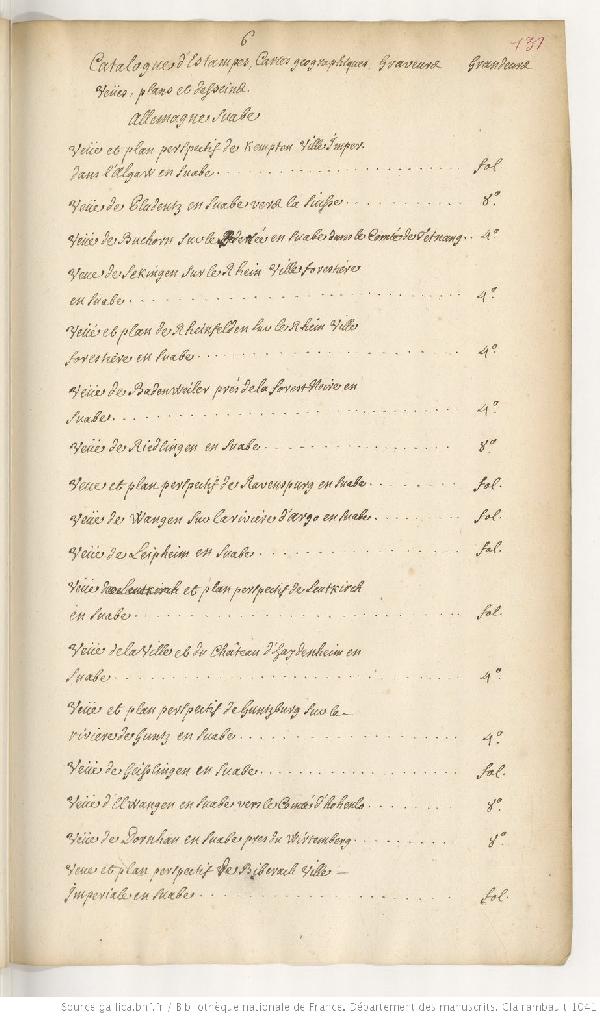 6
137
Catalogue d'Estampes, Cartes geographiques, Graveurs Grandeurs
Veües, plans et desseins.
Allemagne Suabe
Veüe et plan perspectif de Kempton Ville Imper.
dans l'Algaw en Suabe. fol
Veüe de Bludentz en Suabe vers la Suisse. 8°
Veüe de Buchorn sur le en Suabe dans le Comté de Tetnang. 4°
Veue de Sekingen sur le Rhein Ville forestiére
en Suabe. 4°
Veüe et plan de Rheinfelden sur le Rhein Ville
forestière en Suabe. 4°
Veüe de Badenweiler prés de la forest Noire en
Suabe. 4°
Veüe de Riedlingen en Suabe. 8°
Veue et plan perspectif de Ravenspurg en Suabe. fol.
Veüe de Wangen sur la riviére d'Argo en Suabe. fol.
Veüe de Leipheim en Suabe. fol.
Veüe et plan perspectif de Leutkirch
en Suabe. fol.
Veüe de la Ville et du Château d'Haydenheim en
Suabe. 4°
Veüe et plan perspectif de Guntzburg sur la
riviere de Guntz en Suabe. 4°
Veüe de Geislingen en Suabe. fol.
Veüe d'Elwangen en Suabe vers le Comté d'hohenlo. 8°
Veüe de Dornhau en Suabe pres du Wirtemberg. 8°
Veue et plan perspectif de Biberach Ville
Imperiale en Suabe. fol.
Source gallica.bnf.fr / Bibliothèque nationale de France. Département des manuscrits. Clairambault 1041